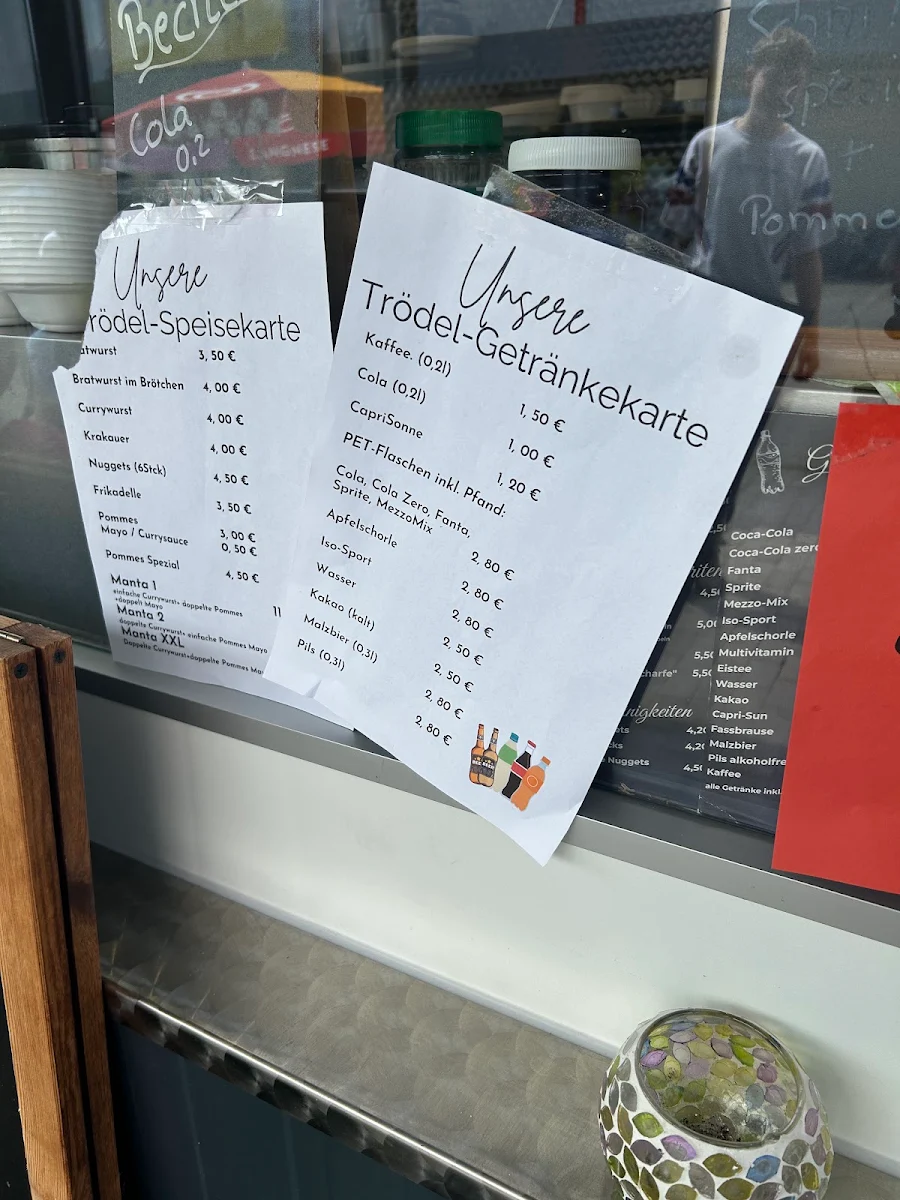 Cola
0,2
LANGNESE
Pomme
Unsere
rödel-Speisekarte
atwurst 3,50 €
Bratwurst im Brötchen 4,00 €
Currywurst 4,00 €
Krakauer 4,00 €
Nuggets (6Stck) 4,50 €
Frikadelle 3,50 €
Pommes 3,00 €
Mayo / Currysauce 0,50 €
Pommes Spezial 4,50 €
Manta 1 11
einfache Currywurst+ doppelte Pommes
+doppelt Mayo
Manta 2
doppelte Currywurst+ einfache Pommes Mayo
Manta XXL
Doppelte Currywurst+doppelte Pommes
Unsere
Trödel-Getränkekarte
Kaffee. (0,2l) 1,50 €
Cola (0,2l) 1,00 €
CapriSonne 1,20 €
PET-Flaschen inkl. Pfand:
Cola, Cola Zero, Fanta,
Sprite, MezzoMix 2,80 €
Apfelschorle 2,80 €
Iso-Sport 2,80 €
Wasser 2,50 €
Kakao (kalt) 2,50 €
Malzbier (0,3l) 2,80 €
Pils (0,3l) 2,80 €
G
Coca-Cola
Coca-Cola zero
Fanta
Sprite
Mezzo-Mix
Iso-Sport
Apfelschorle
Multivitamin
Eistee
Wasser
Kakao
Capri-Sun
Fassbrause
Malzbier
Pils alkoholfre
Kaffee
alle Getränke inkl.
charfe" 5,50
nigkeiten
ets 4,20
cks 4,20
Nuggets 4,50